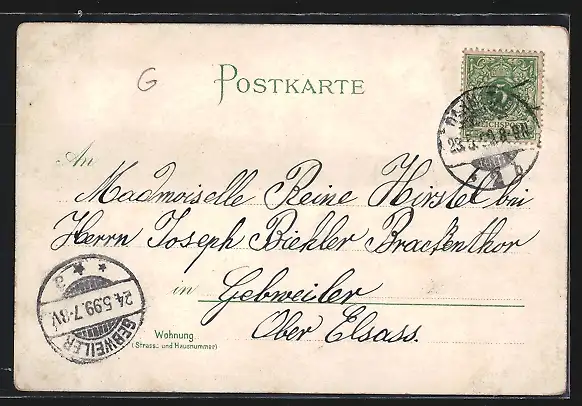 G
POSTKARTE
5
REICHSPOST
23.5.99.8-9N.
* 2 b
An
Madmoiselle Reine Hirstel bei
Herrn Joseph Biehler Brackenthor
in Gebweiler
Ober Elsass.
Wohnung
(Strasse und Hausnummer)
a
24.5.99.7-8V.
GEBWEILER